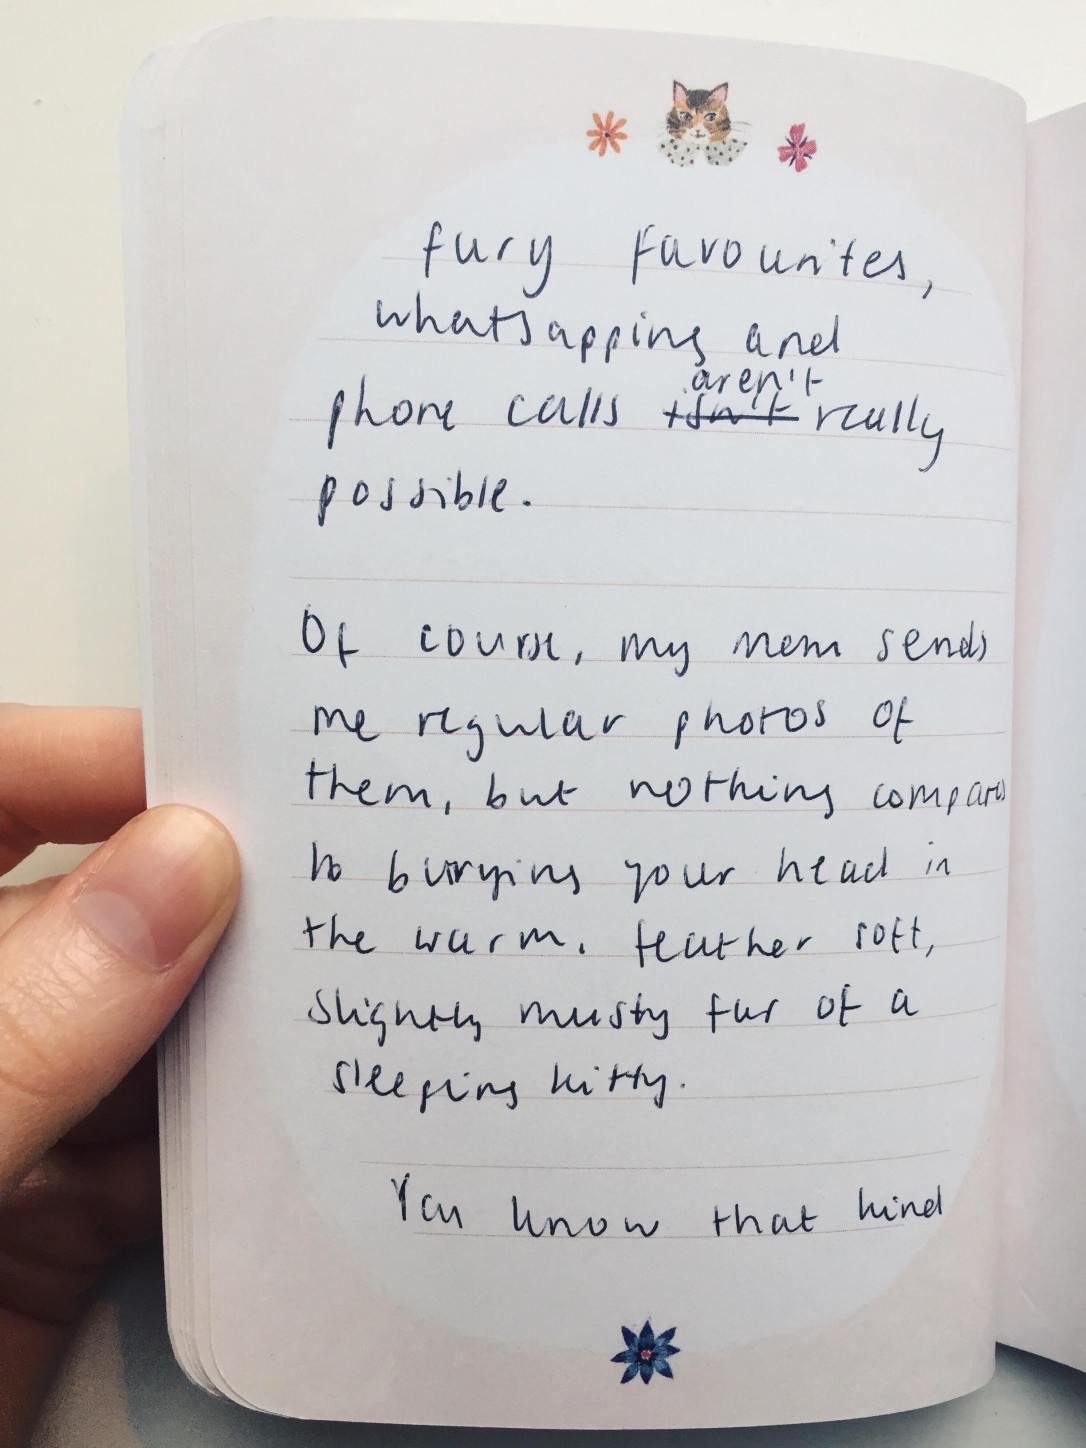 fury favourites,
whatsapping and
aren't
phone calls isn't really
possible.
Of course, my mom sends
me regular photos of
them, but nothing compares
to burying your head in
the warm, feather soft,
slightly musty fur of a
sleeping kitty.
You know that kind